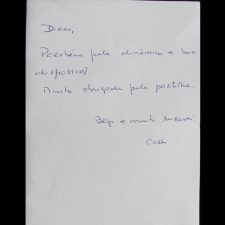 Diana,
Parabéns pela dinâmica e boa
disposição!
Muito obrigada pela partilha.
Beijo e muito sucesso!